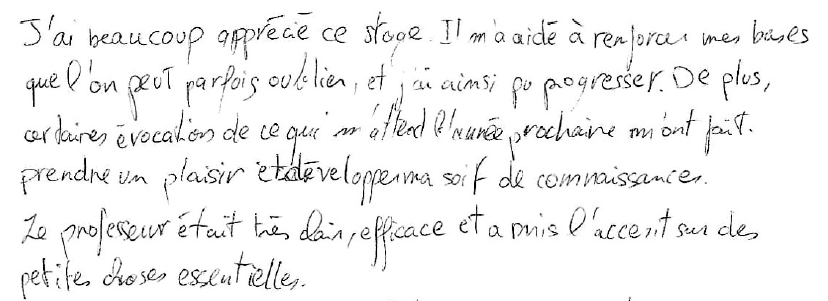 J'ai beaucoup apprécié ce stage. Il m'a aidé à renforcer mes bases
que l'on peut parfois oublier, et j'ai ainsi pu progresser. De plus,
certaines évocation de ce qui m'attend l'année prochaine m'ont fait
prendre un plaisir et développer ma soif de connaissances.
Le professeur était très clair, efficace et a mis l'accent sur des
petites choses essentielles.